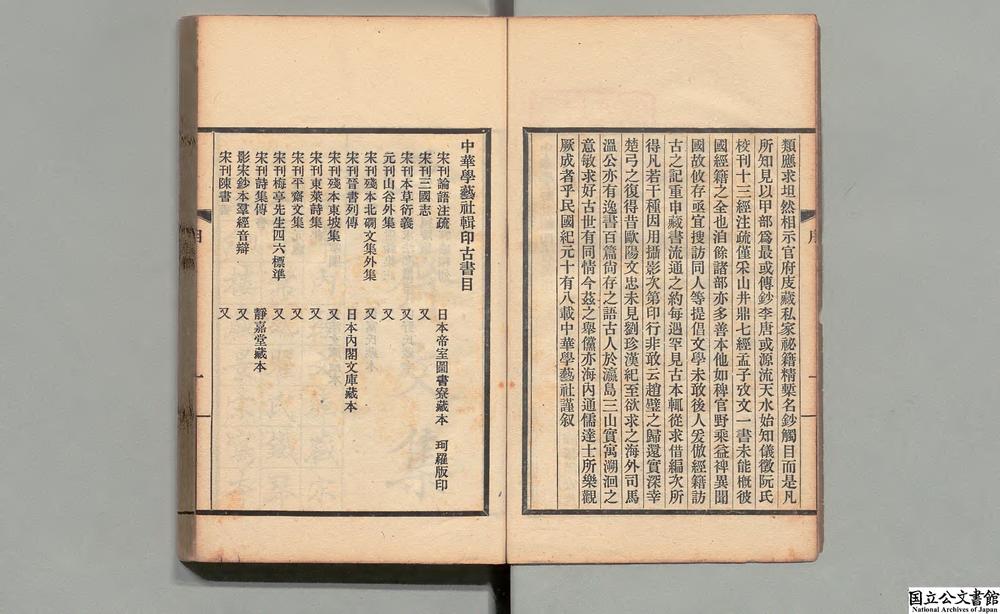 類應求坦然相示官府庋藏私家祕籍精槧名鈔觸目而是凡
所知見以甲部爲最或傳鈔李唐或源流天水始知儀徵阮氏
校刊十三經注疏僅采山井鼎七經孟子攷文一書未能槪彼
國經籍之全也洎餘諸部亦多善本他如稗官野乘益裨異聞
國故攸存亟宜搜訪同人等提倡文學未敢後人爰倣經籍訪
古之記重申藏書流通之約每遇罕見古本輒從求借編次所
得凡若干種因用攝影次第印行非敢云趙璧之歸還實深幸
楚弓之復得昔歐陽文忠未見劉珍漢紀至欲求之海外司馬
溫公亦有逸書百篇尙存之語古人於瀛島三山實寓溯洄之
意敏求好古世有同情今茲之舉儻亦海內通儒達士所樂觀
厥成者乎民國紀元十有八載中華學藝社謹叙
中華學藝社輯印古書目
宋刊論語注疏 日本帝室圖書寮藏本 珂羅版印
宋刊三國志 又
宋刊本草衍義 又
元刊山谷外集 又
宋刊殘本北磵文集外集 又
宋刊晉書列傳 日本內閣文庫藏本
宋刊殘本東坡集 又
宋刊東萊詩集 又
宋刊平齋文集 又
宋刊梅亭先生四六標準 又
宋刊詩集傳 靜嘉堂藏本
影宋鈔本羣經音辯 又
宋刊陳書 又
一
国立公文書館
National Archives of Japan